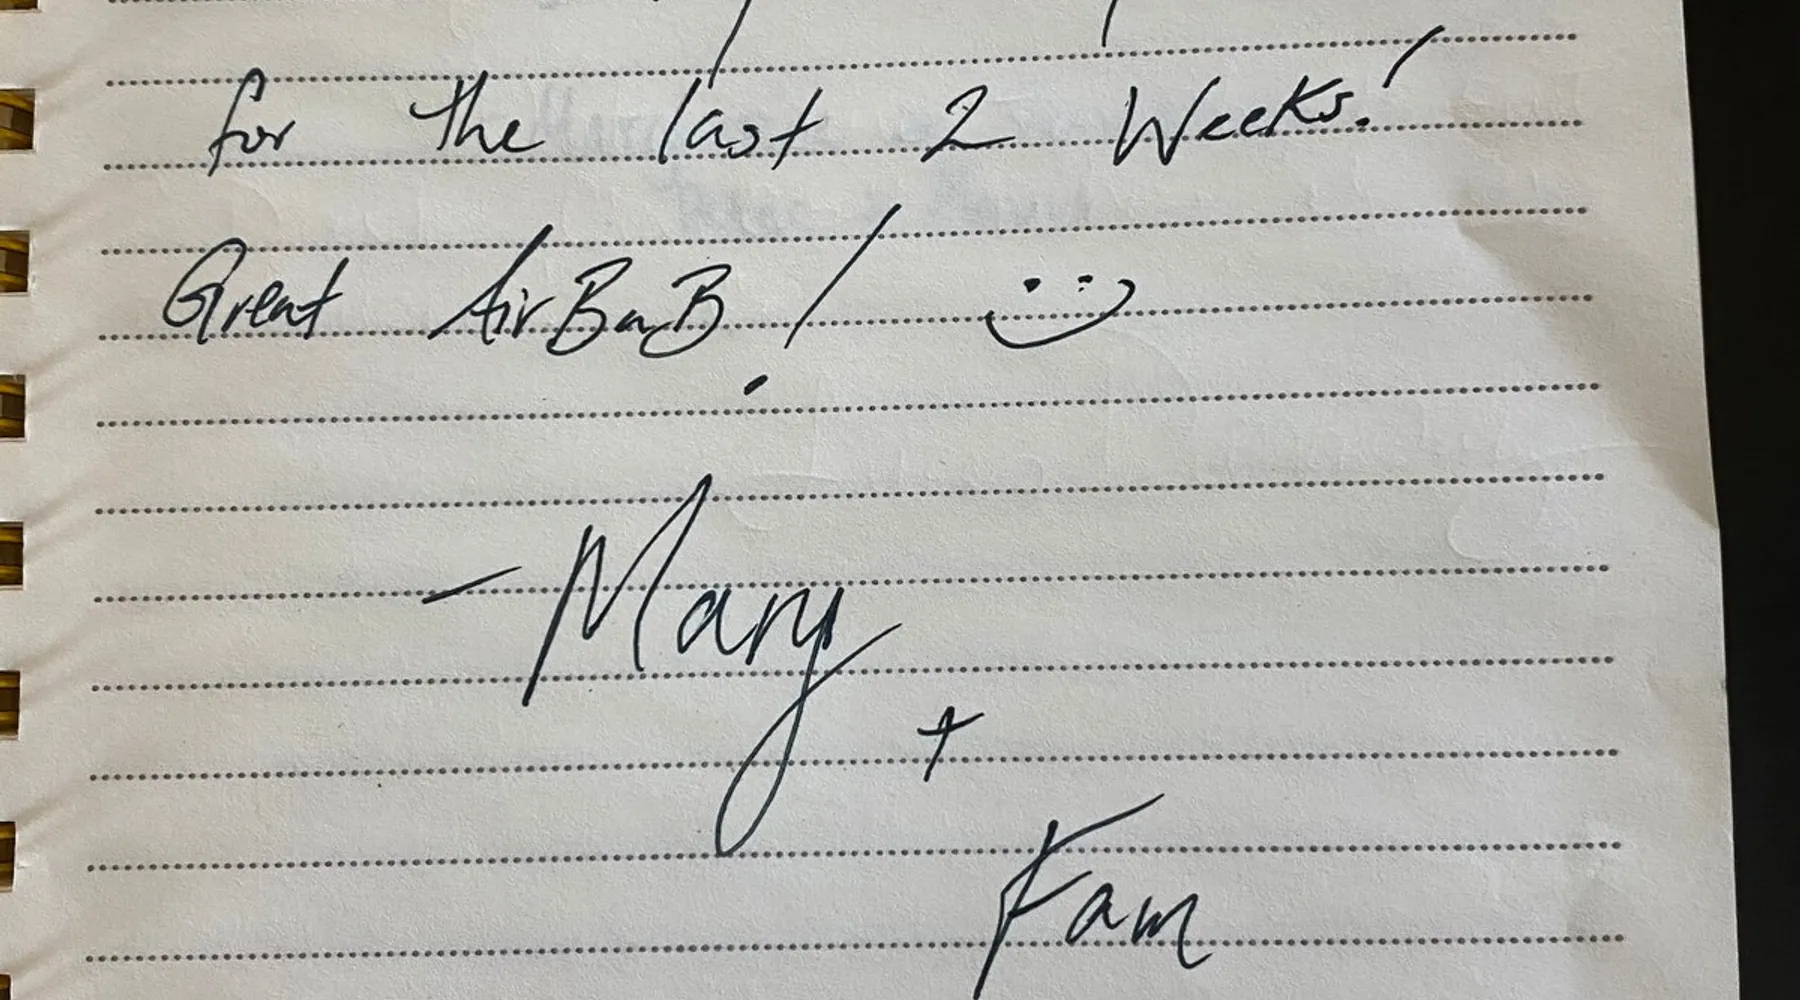 for the last 2 Weeks!
Great AirBnB! :)
- Mary
+
Fam